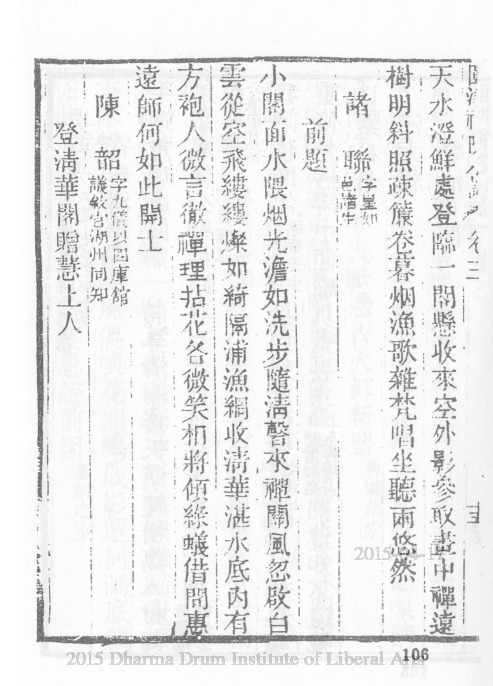 天水澄鮮處登臨一閣懸收來空外影參取畫中禪遠
樹明斜照疎簾卷暮烟漁歌雜梵唱坐聽兩悠然
諸聯
邑諸生
前題
小閣面水隈烟光澹如洗步隨清磬來禪關風忽啟白
雲從空飛縷縷燦如綺隔浦漁網收清華湛水底內有
方袍人微言徹禪理拈花各微笑相將傾綠蟻借問惠
遠師何如此開士
陳韶
字九儀以四庫館
議敘官湖州同知
登清華閣贈慧上人
106
2015 Dharma Drum Institute of Liberal Arts